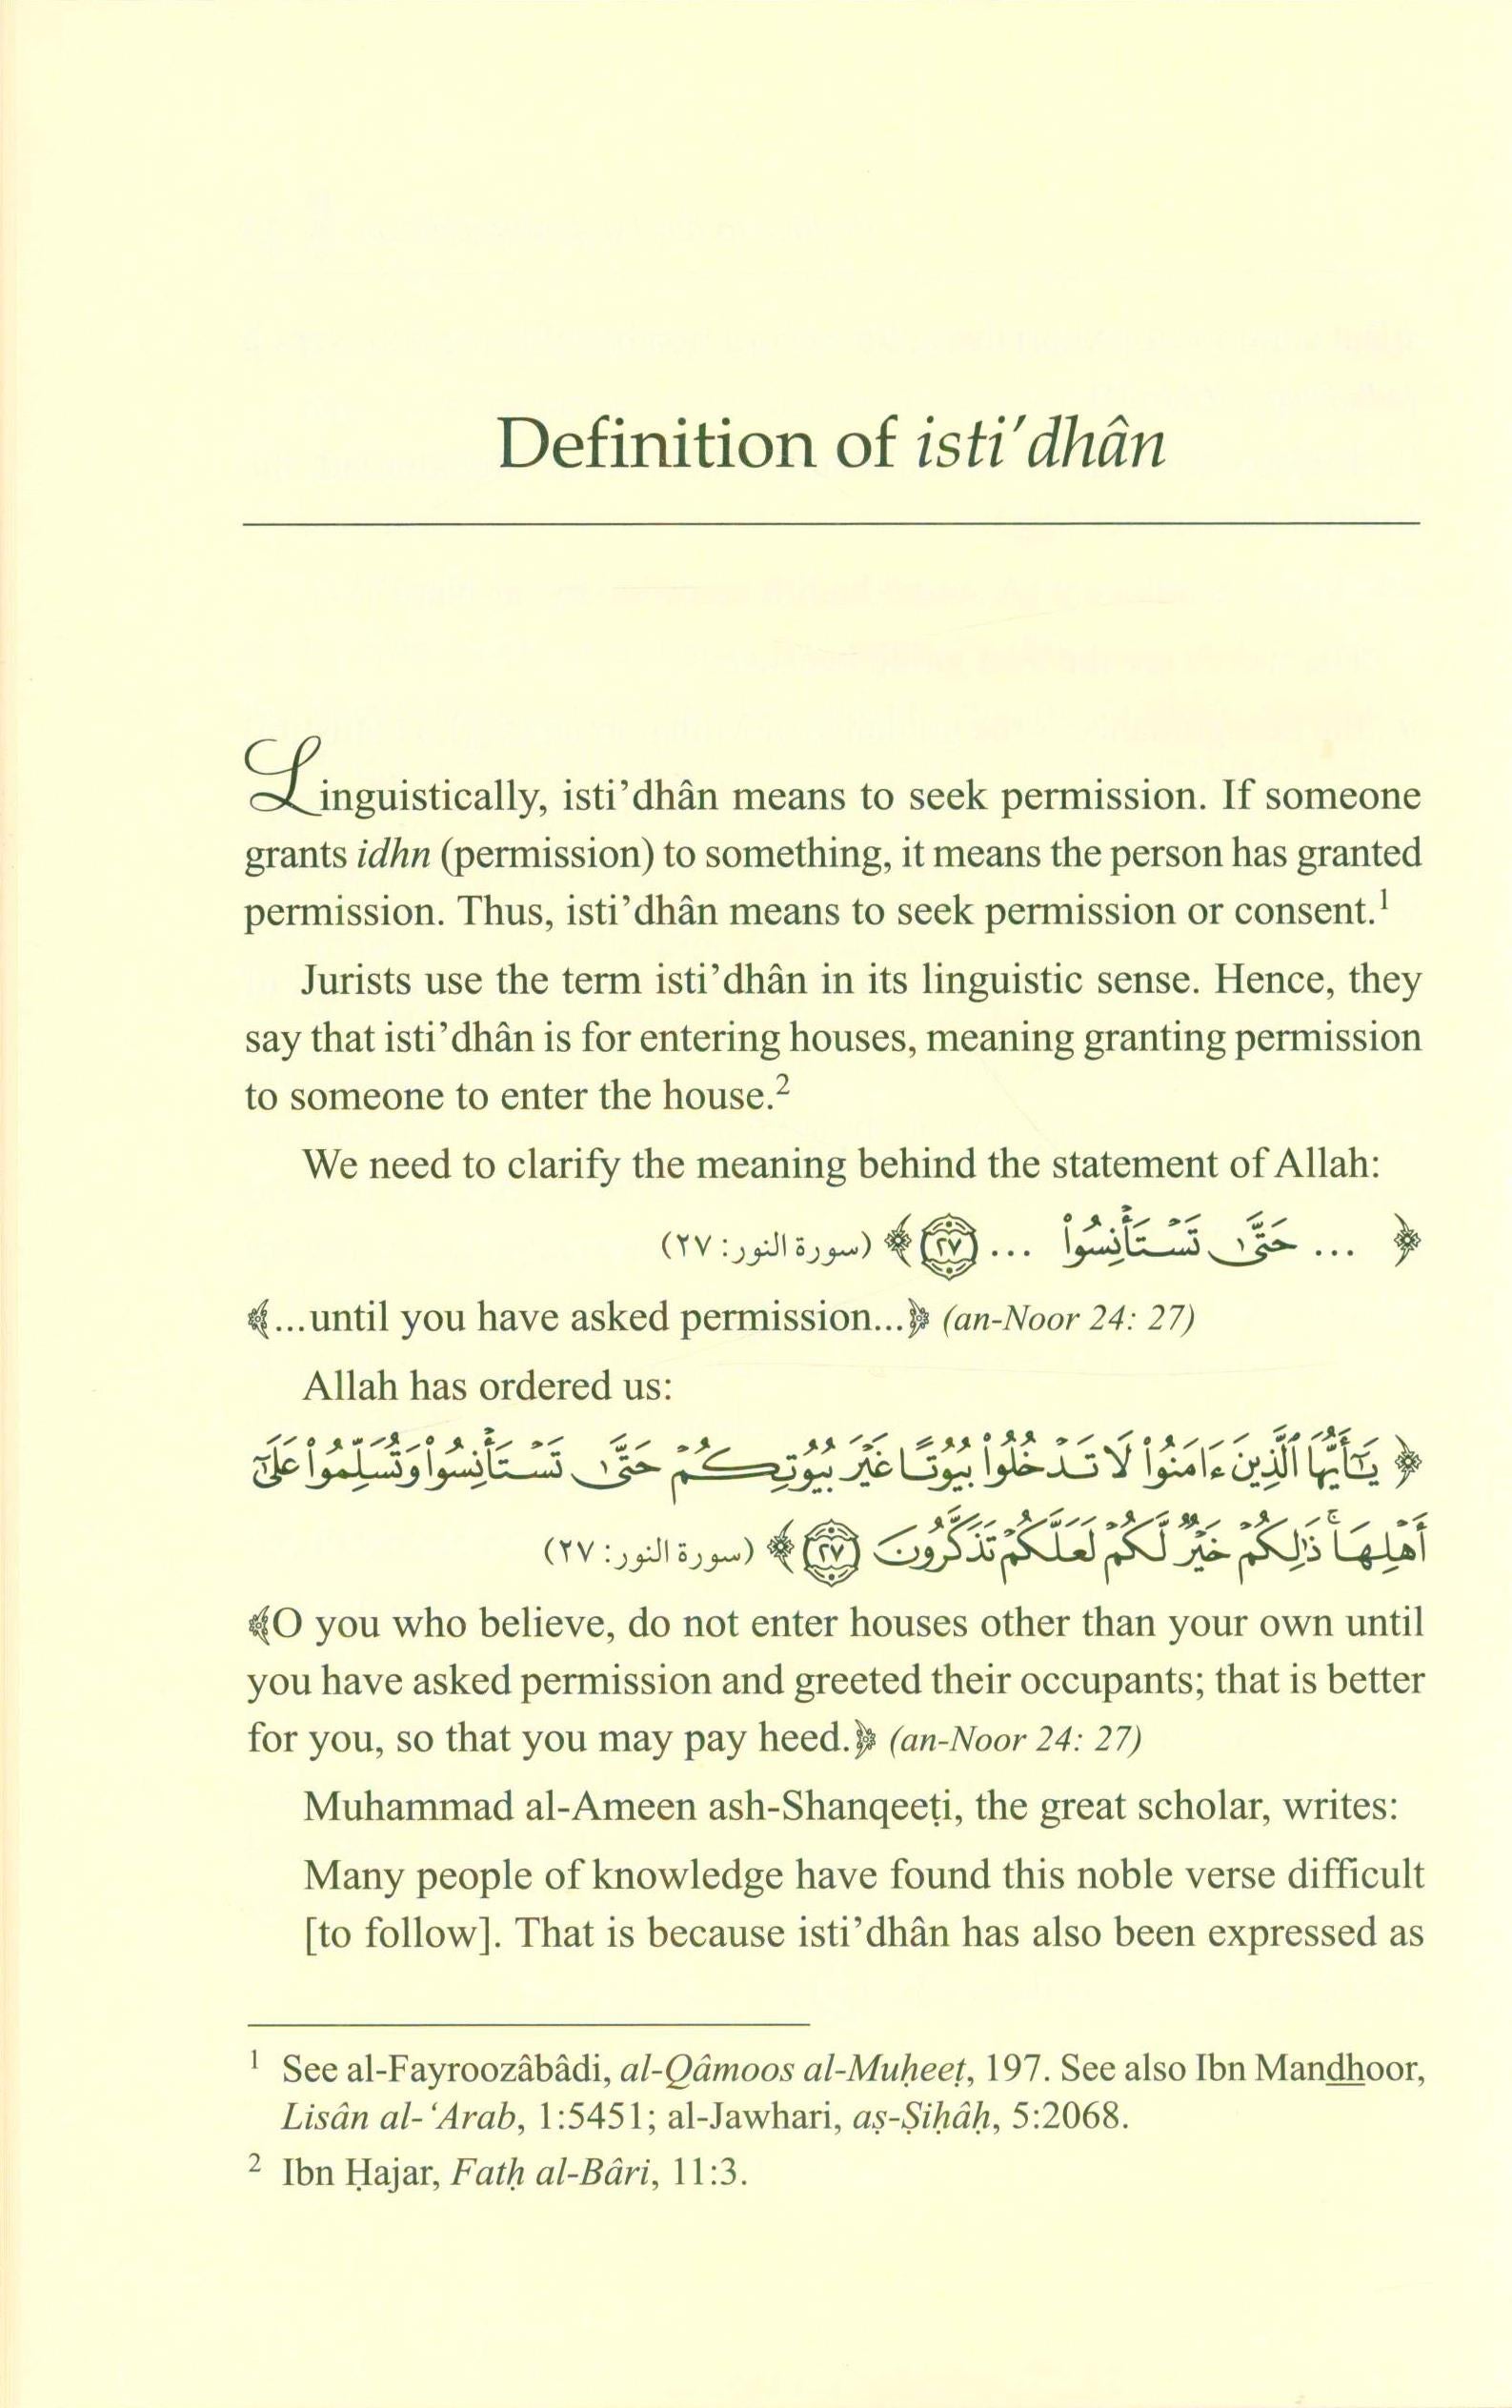 Definition of isti’dhân
Linguistically, isti’dhân means to seek permission. If someone
grants idhn (permission) to something, it means the person has granted
permission. Thus, isti’dhân means to seek permission or consent.¹
Jurists use the term isti’dhân in its linguistic sense. Hence, they
say that isti’dhân is for entering houses, meaning granting permission
to someone to enter the house.²
We need to clarify the meaning behind the statement of Allah:
﴿ ... حَتَّىٰ تَسْتَأْنِسُوا۟ ... ٢٧ ﴾ (سورة النور: ٢٧)
﴾...until you have asked permission...﴿ (an-Noor 24: 27)
Allah has ordered us:
﴿ يَـٰٓأَيُّهَا ٱلَّذِينَ ءَامَنُوا۟ لَا تَدْخُلُوا۟ بُيُوتًا غَيْرَ بُيُوتِكُمْ حَتَّىٰ تَسْتَأْنِسُوا۟ وَتُسَلِّمُوا۟ عَلَىٰٓ
أَهْلِهَا ۚ ذَٰلِكُمْ خَيْرٌ لَّكُمْ لَعَلَّكُمْ تَذَكَّرُونَ ٢٧ ﴾ (سورة النور: ٢٧)
﴾O you who believe, do not enter houses other than your own until
you have asked permission and greeted their occupants; that is better
for you, so that you may pay heed.﴿ (an-Noor 24: 27)
Muhammad al-Ameen ash-Shanqeeṭi, the great scholar, writes:
Many people of knowledge have found this noble verse difficult
[to follow]. That is because isti’dhân has also been expressed as
¹ See al-Fayroozâbâdi, al-Qâmoos al-Muḥeeṭ, 197. See also Ibn Mandhoor,
Lisân al-‘Arab, 1:5451; al-Jawhari, aṣ-Ṣiḥâḥ, 5:2068.
² Ibn Ḥajar, Fatḥ al-Bâri, 11:3.